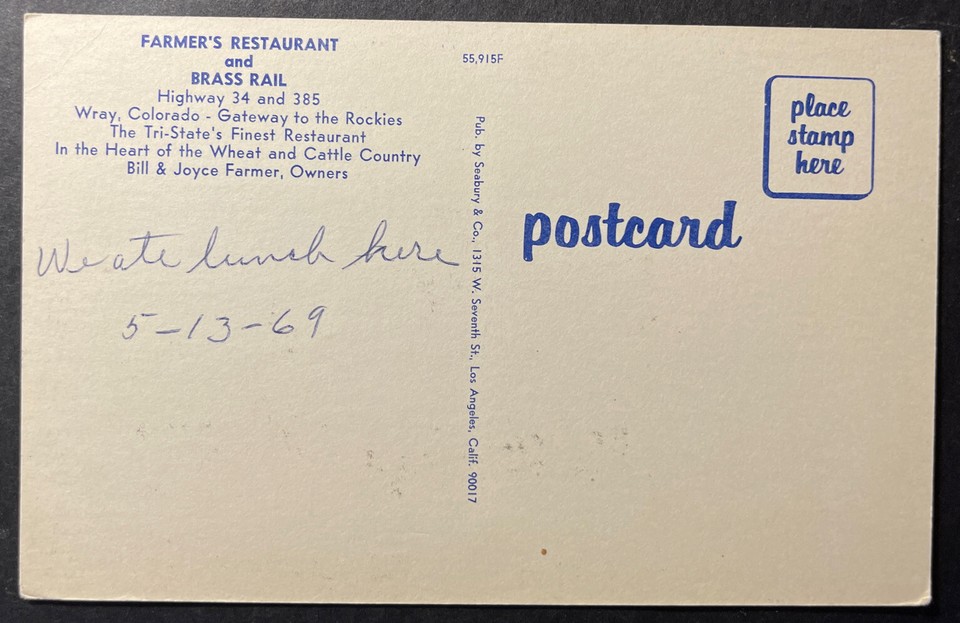 FARMER'S RESTAURANT
and
BRASS RAIL
Highway 34 and 385
Wray, Colorado - Gateway to the Rockies
The Tri-State's Finest Restaurant
In the Heart of the Wheat and Cattle Country
Bill & Joyce Farmer, Owners
We ate lunch here
5-13-69
55,915F
Pub. by Seabury & Co., 1315 W. Seventh St., Los Angeles, Calif. 90017
place
stamp
here
postcard